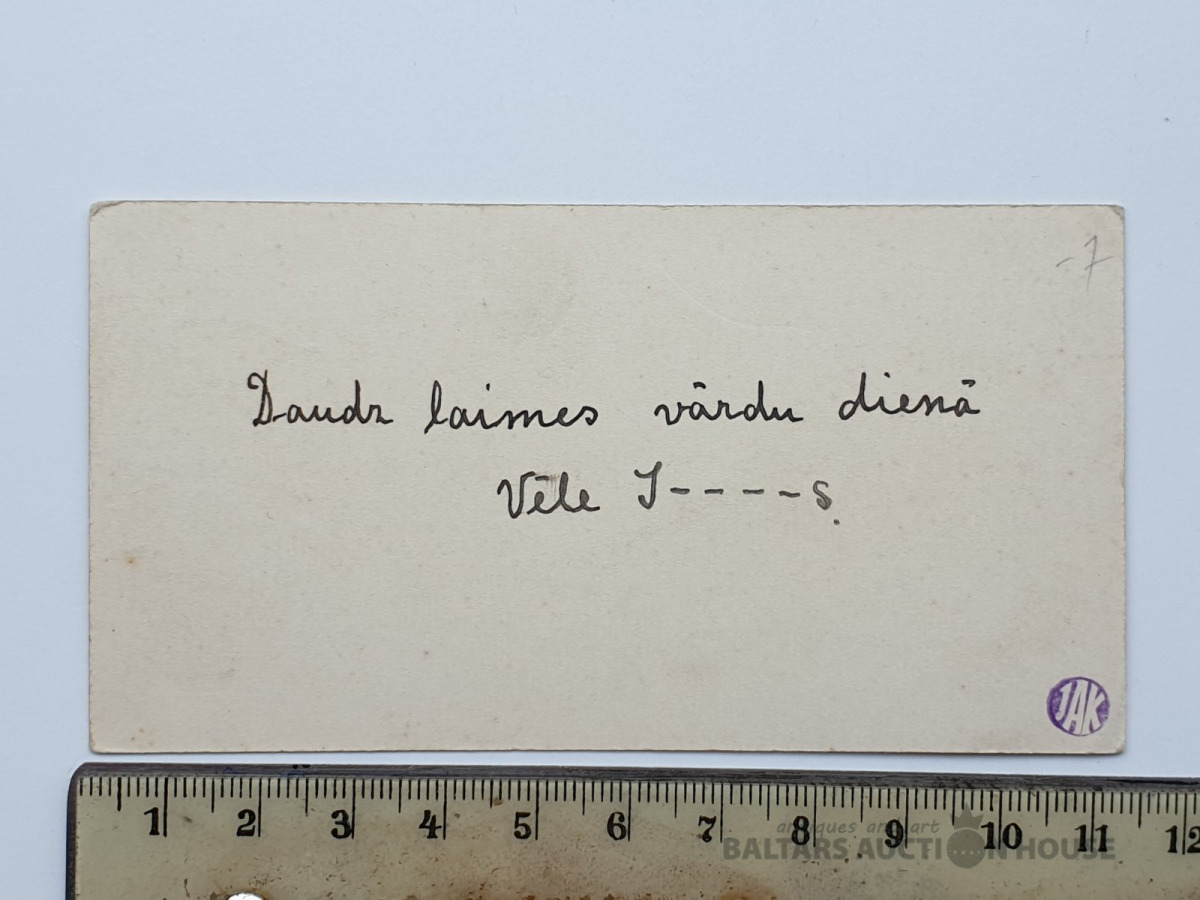 -7
Daudz laimes vārdu dienā
Vēle J----s.
JAK
1 2 3 4 5 6 7 8 9 10 11 12
antiques and art
BALTARS AUCTION HOUSE